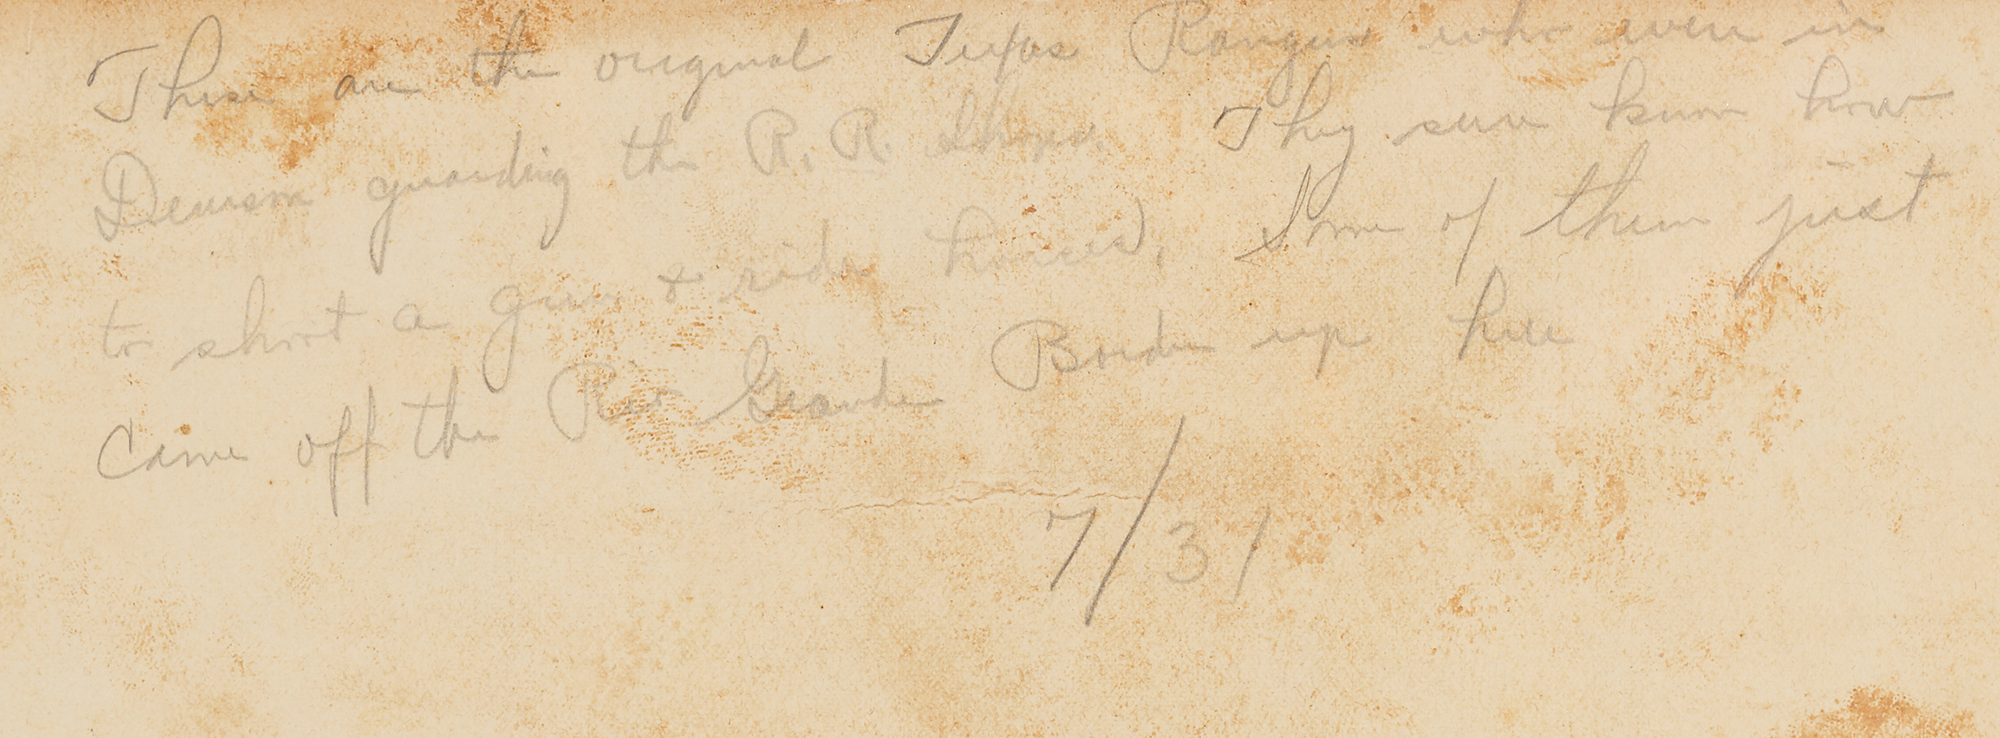 These are the original Texas Rangers who were in
Denison guarding the R.R. Shops. They sure know how
to shoot a gun & ride horses, Some of them just
came off the Rio Grande Border up here
7/31